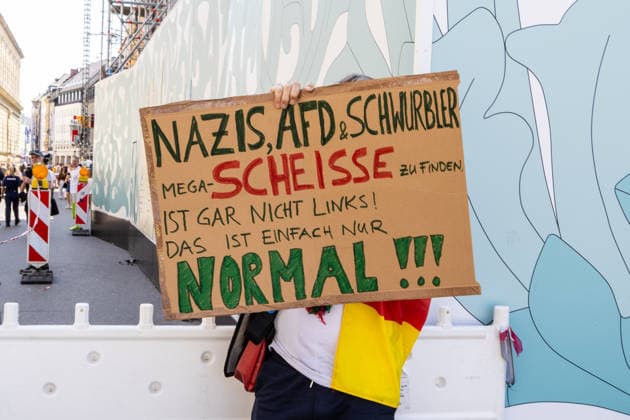 NAZIS, AFD & SCHWURBLER
MEGA-SCHEISSE ZU FINDEN,
IST GAR NICHT LINKS!
DAS IST EINFACH NUR
NORMAL!!!